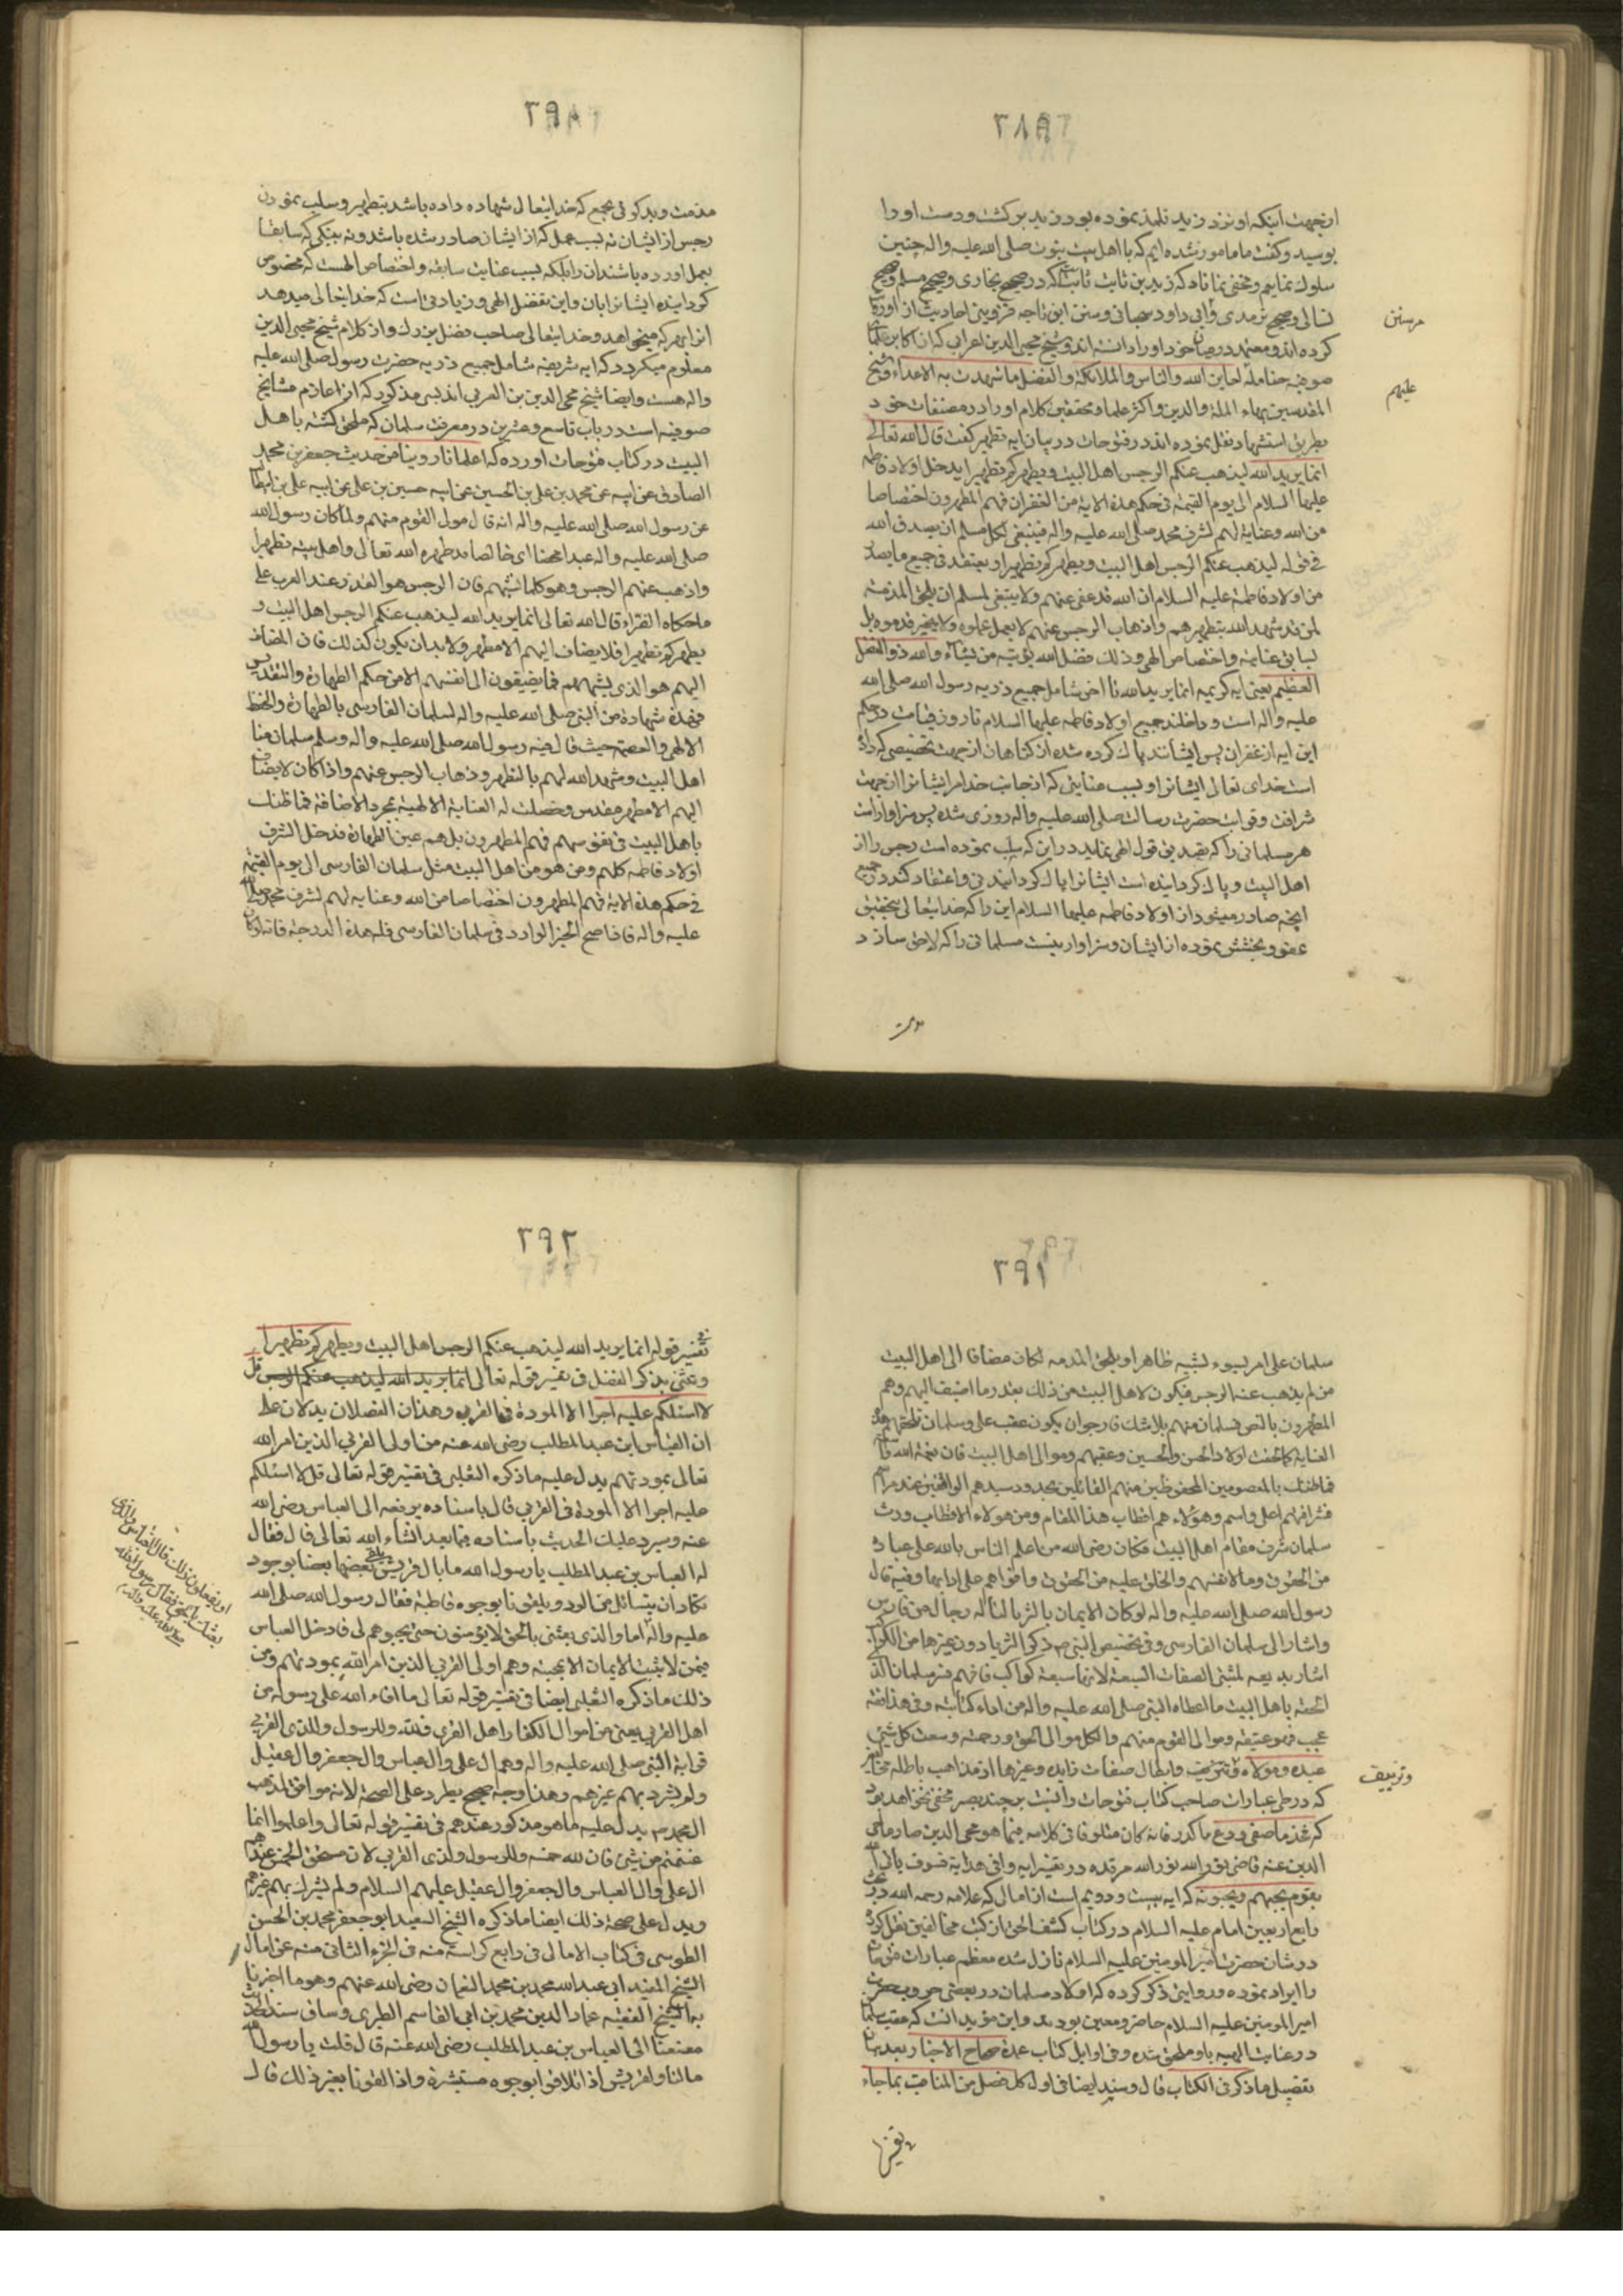 ۲۸۹
ازجهت اینکه او نزد زید تلمیذ نموده بود زید برگشت و دست او را
بوسید و گفت ما مامور شده ایم که با اهل بیت نبوت صلی الله علیه واله چنین
سلوک نمایم و مخفی نماناد که زید بن ثابت که در صحیح بخاری و صحیح مسلم و صحیح
نسائی و صحیح ترمدی وابی داود و سنن ابن ماجه قزوینی احادیث از او
کرده اند و معتمد در میان خود او را دانسته اند و شیخ محیی الدین اعرابی که از اکابر علماء
صوفیه والناس والملائکة والفضل ما شهدت به الاعداء و شیخ
المقدسین بهاء الملة والدین و اکثر علما و محققین کلام او را در مصنفات خود
بطریق استشهاد نقل نموده اند در فتوحات در بیان ایه تطهیر گفت قال الله تعالی
انما یرید الله لیذهب عنکم الرجس اهل البیت و یطهرکم تطهیرا یدخل اولاد فاطمه
علیها السلام الی یوم القیمة فی حکم هذه الایة من الغفران فهم المطهرون اختصاصا
من الله وعنایة لهم لشرف محمد صلی الله علیه واله فینبغی لکل مسلم ان یصدق الله
فی قوله لیذهب عنکم الرجس اهل البیت و یطهرکم تطهیرا و یعتقد فی جمیع ما یصدر
من اولاد فاطمة علیه السلام ان الله قد عفی عنهم ولا ینبغی لمسلم ان یلحق المذمة
لمن قد شهد الله بتطهیرهم واذهاب الرجس عنهم لا بعمل عملوه ولا بخیر قدموه بل
لسابق عنایة واختصاص الهی وذلک فضل الله یؤتیه من یشاء والله ذو الفضل
العظیم یعنی ایه کریمه انما یرید الله تا اخر شامل جمیع ذریه رسول الله صلی الله
علیه واله است و داخلند جمیع اولاد فاطمه علیها السلام تا روز قیامت در حکم
این ایه از غفران پس ایشانند پاک کرده شده از گناهان ازجهت تخصیصی که داده
است خدای تعالی ایشانرا و بسبب عنایتی که از جانب خدا مر ایشانرا ازجهت
شرافت و قرابت حضرت رسالت صلی الله علیه واله روزی شده پس سزاوار است
هر مسلمانی را که تصدیق قول الهی نماید در این که سلب نموده است رجس را از
اهل البیت و پاک گردانیده است ایشانرا پاک گردانیدنی و اعتقاد کند در جمیع
انچه صادر میشود از اولاد فاطمه علیها السلام این را که خدایتعالی بتحقیق
عفو و بخشش نموده از ایشان و سزاوار نیست مسلمانی را که لاحق سازد
علیهم
۲۹۰
مذمت و بدگوئی بجمع که خدایتعالی شهاده داده باشد بتطهیر و سلب نمودن
رجس از ایشان نه بسبب عمل که از ایشان صادر شده باشد و نه به نیکی که سابقا
بعمل اورده باشند ان را بلکه بسبب عنایت سابقه و اختصاص الهیست که مخصوص
گردانیده ایشانرا بان و این بفضل الهی و زیادتی است که خدایتعالی میدهد
انرا بهر که میخواهد و خدایتعالی صاحب فضل بزرگ و از کلام شیخ محیی الدین
معلوم میگردد که ایه شریفه شامل جمیع ذریه حضرت رسول صلی الله علیه
واله هست و ایضا شیخ محی الدین بن العربی اندلسی مذکور که از اعاظم مشایخ
صوفیه است در باب تاسع و عشرین در معرفت سلمان که ملحق گشته باهل
البیت در کتاب فتوحات اورده که اعلم انا روینا من حدیث جعفر بن محمد
الصادق عن ابیه عن محمد بن علی بن الحسین عن ابیه حسین بن علی عن ابیه علی بن ابیطالب
عن رسول الله صلی الله علیه واله انه قال مولی القوم منهم ولما کان رسول الله
صلی الله علیه واله عبدا محضا ای خالصا قد طهره الله تعالی واهل بیته تطهیرا
واذهب عنهم الرجس وهو کلما یشینهم فان الرجس هو القذر عند العرب علی
ما حکاه الفراء قال الله تعالی انما یرید الله لیذهب عنکم الرجس اهل البیت و
یطهرکم تطهیرا فلا یضاف الیهم الا مطهر ولا بد ان یکون کذلک فان المضاف
الیهم هو الذی یشبههم فما یضیفون الی انفسهم الا من حکم الطهارة والتقدیس
فهذه شهادة من النبی صلی الله علیه واله لسلمان الفارسی بالطهارة والحفظ
الالهی والعصمة حیث قال فیه رسول الله صلی الله علیه واله وسلم سلمان منا
اهل البیت وشهد الله لهم بالتطهیر وذهاب الرجس عنهم واذا کان لا یضاف
الیهم الا مطهر مقدس وحصلت له العنایة الالهیة بمجرد الاضافة فما ظنک
باهل البیت فی نفوسهم فهم المطهرون بل هم عین الطهارة فدخل الشرف
اولاد فاطمه کلهم ومن هو من اهل البیت مثل سلمان الفارسی الی یوم القیمة
فی حکم هذه الایة فهم المطهرون اختصاصا من الله وعنایه لهم لشرف محمد صلی الله
علیه واله فاذا صح الخبر الوارد فی سلمان الفارسی فله هذه الدرجة فانه لو کان
۲۹۱
سلمان علی امر یسوء لشبه ظاهرا و یلحق المذمه لکان مضافا الی اهل البیت
من لم یذهب عنه الرجس فیکون لاهل البیت من ذلک بقدر ما اضیف الیهم وهم
المطهرون بالنص فسلمان منهم بلا شک فارجو ان یکون عقب علی وسلمان تلحقهم هذه
العنایة کما لحقت اولاد الحسن والحسین وعقبهم وموالی اهل البیت فان رحمة الله
فما ظنک بالمعصومین المحفوظین منهم القائلین بحدود سیدهم الواقفین عند مراسمه
فشرافهم اعلی واسم وهؤلاء هم اقطاب هذا المقام ومن هولاء الاقطاب ورث
سلمان شرف مقام اهل البیت فکان رضی الله من اعلم الناس بالله علی عباده
من الحقوق وما لانفسهم والخلق علیه من الحقوق واقواهم علی ادائها وفیه قال
رسول الله صلی الله علیه واله لو کان الایمان بالثریا لناله رجال من فارس
واشار الی سلمان الفارسی وفی تخصیص النبی ص ذکر الثریا دون غیرها من الکواکب
اشارة بدیعه لمثبتی الصفات السبعة لانها سبعة کواکب فافهم فسر سلمان الذی
الحقه باهل البیت ما اعطاه النبی صلی الله علیه واله من اداء کتابته وفی هذا فقه
عجیب فهو عتیقه ومولی القوم منهم والکل موالی الحق ورحمته وسعت کل شیئ
عبده ومولاه و ابطال صفات زایده و غیرها از مذاهب باطله
که در طی عبارات صاحب کتاب فتوحات واقعست بر چند بصر مخفی نخواهد بود
که خذ ما صفی ودع ما کدر فانه کان متلونا فی کلامه فیما هو محی الدین صار ماحی
الدین عنه قاضی نور الله نور الله مرقده در تفسیر ایه وافی هدایة فسوف یاتی الله
بقوم یحبهم ویحبونه که ایه بیست و دویم است از امال که علامه رحمه الله در بحث
رابع اربعین امام علیه السلام در کتاب کشف الحق از کتب مخالفین نقل کرده
در شان حضرت امیر المومنین علیه السلام نازل شده معظم عبارات فتوحات
را ایراد نموده و روایتی ذکر کرده که اولاد سلمان در بعضی حروب حضرت
امیر المومنین علیه السلام حاضر و معین بودند و این مؤید انست که عقب سلمان
در عنایت الهیه باو ملحق شده و فی اوایل کتاب عمدة صحاح الاخبار بعد بیان
تفصیل ما ذکر فی الکتاب قال وسند ایضا فی اول کل فصل من المناقب بما جاء
وتزییف
۲۹۲
فی تفسیر قوله انما یرید الله لیذهب عنکم الرجس اهل البیت ویطهرکم تطهیرا
ونثنی بذکر الفضل فی تفسیر قوله تعالی انما یرید الله لیذهب عنکم الرجس قل
لا اسئلکم علیه اجرا الا المودة فی القربی وهذان الفصلان یدلان علی
ان العباس ابن عبد المطلب رضی الله عنه من اولی القربی الذین امر الله
تعالی بمودتهم یدل علیه ما ذکره الثعلبی فی تفسیر قوله تعالی قل لا اسئلکم
علیه اجرا الا المودة فی القربی قال باسناده یرفعه الی العباس رضی الله
عنه وسیرد علیک الحدیث باسناده فیما بعد انشاء الله تعالی قال فقال
له العباس بن عبد المطلب یا رسول الله ما بال قریش یلقی بعضها بعضا بوجوه
تکاد ان یتسائل من الود ویلقونا بوجوه قاطبة فقال رسول الله صلی الله
علیه واله اما والذی بعثنی بالحق لا یؤمنون حتی یحبوهم لی فادخل العباس
فیمن لا یثبت الایمان الا بمحبته وهم اولی القربی الذین امر الله بمودتهم ومن
ذلک ما ذکره الثعلبی ایضا فی تفسیر قوله تعالی ما افاء الله علی رسوله من
اهل القری یعنی من اموال الکفار اهل القری فلله وللرسول ولذی القربی
قرابة النبی صلی الله علیه واله وهم ال علی وال عباس وال جعفر وال عقیل
ولم یشرک بهم غیرهم وهذا وجه صحیح یطرد علی الصحة لانه موافق لمذهب
ال محمد یدل علیه لما هو مذکور عندهم فی تفسیر قوله تعالی واعلموا انما
غنمتم من شیئ فان لله خمسه وللرسول ولذی القربی لان مستحق الخمس عندهم
ال علی وال العباس وال جعفر وال عقیل علیهم السلام ولم یشرک بهم غیرهم
ویدل علی صحة ذلک ایضا ما ذکره الشیخ السعید ابو جعفر محمد بن الحسن
الطوسی فی کتاب الامالی فی رابع کراسة منه فی الجزء الثانی منه عن امالی
الشیخ المفید ابی عبد الله محمد بن محمد النعمان رضی الله عنهم وهو ما اخبرنا
به الشیخ الفقیه عماد الدین محمد بن ابی القاسم الطبری وساق سند الحدیث
معنعنا الی العباس بن عبد المطلب رضی الله عنه قال قلت یا رسول الله
مالنا ولقریش اذا تلاقوا بوجوه مستبشرة واذا لقونا بغیر ذلک قال